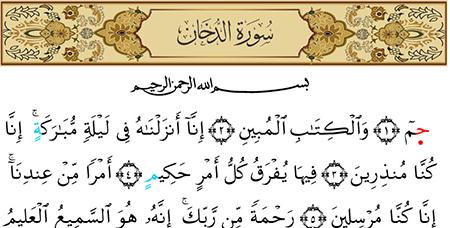 سُورَةُ الدُّخَانِ
بسم الله الرحمن الرحيم
جمٓ ﴿١﴾ وَالْكِتَٰبِ الْمُبِينِ ﴿٢﴾ إِنَّآ أَنزَلْنَٰهُ فِى لَيْلَةٍ مُّبَٰرَكَةٍ ۚ إِنَّا
كُنَّا مُنذِرِينَ ﴿٣﴾ فِيهَا يُفْرَقُ كُلُّ أَمْرٍ حَكِيمٍ ﴿٤﴾ أَمْرًا مِّنْ عِندِنَآ ۚ
إِنَّا كُنَّا مُرْسِلِينَ ﴿٥﴾ رَحْمَةً مِّن رَّبِّكَ ۚ إِنَّهُۥ هُوَ السَّمِيعُ الْعَلِيمُ